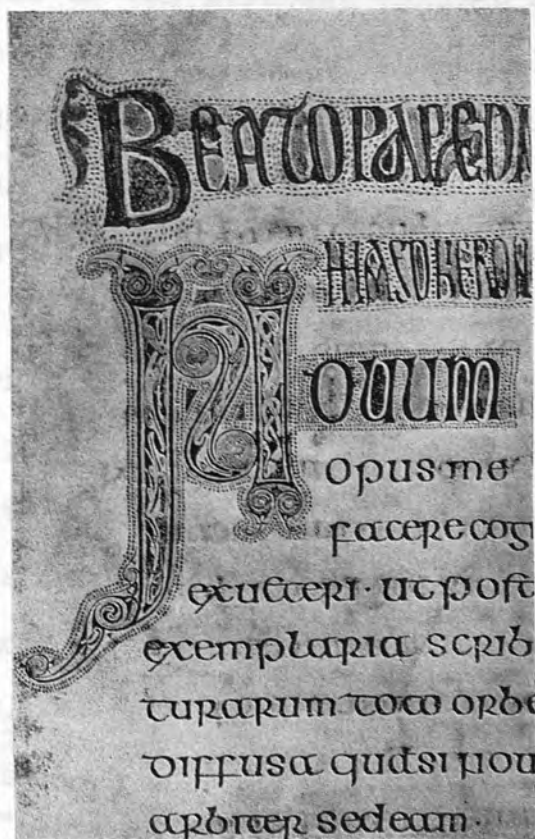 BEATO PAPAE DA
MASO HIERON
NOUUM
opus me
facere cog
exueteri · ut post
exemplaria scrib
turarum toto orbe
diffusa quasi nou
arbiter sedeam ·